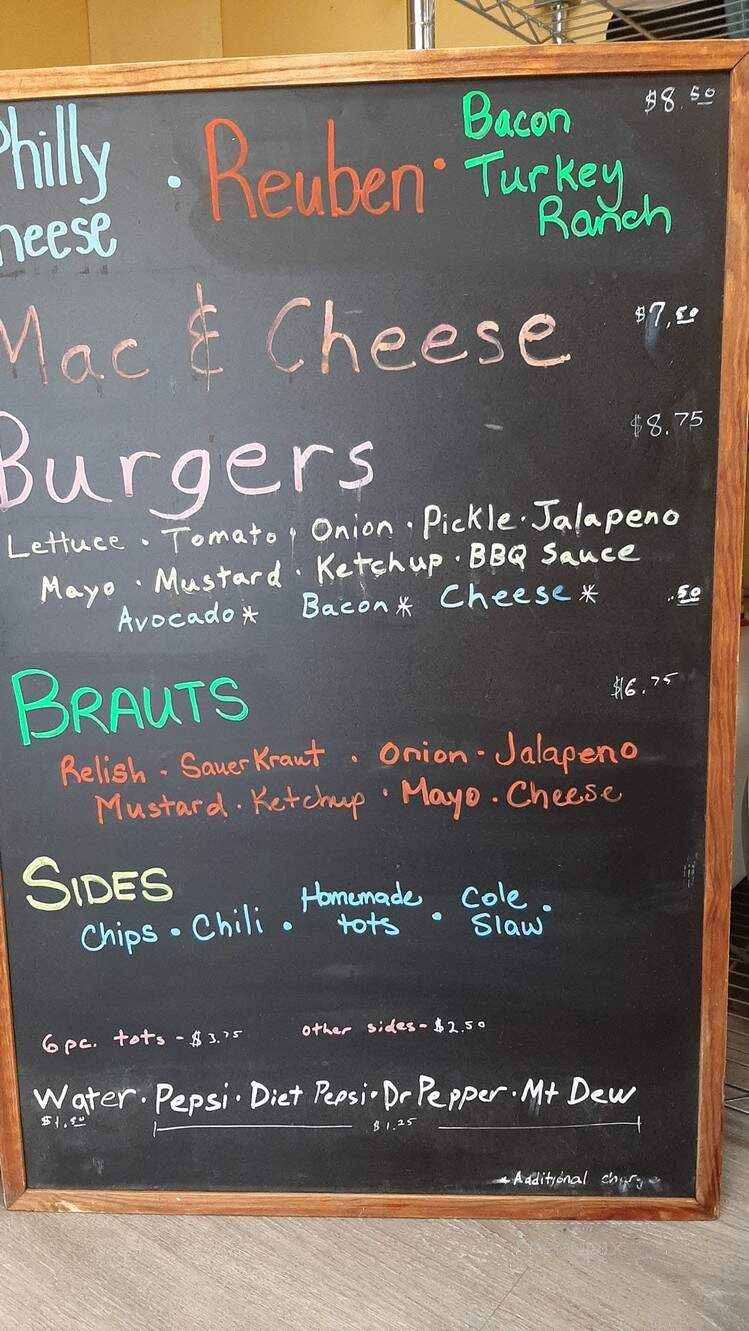 hilly
heese
· Reuben · Bacon Turkey Ranch $8.50
Mac & Cheese $7.50
Burgers $8.75
Lettuce · Tomato · Onion · Pickle · Jalapeno
Mayo · Mustard · Ketchup · BBQ Sauce
Avocado* Bacon* Cheese* .50
BRAUTS $6.75
Relish · SauerKraut · Onion · Jalapeno
Mustard · Ketchup · Mayo · Cheese
SIDES
Chips · Chili · Homemade tots · Cole Slaw ·
6 pc. tots - $3.75 other sides - $2.50
Water · Pepsi · Diet Pepsi · Dr Pepper · Mt Dew
$1.50 $1.25
*Additional charge